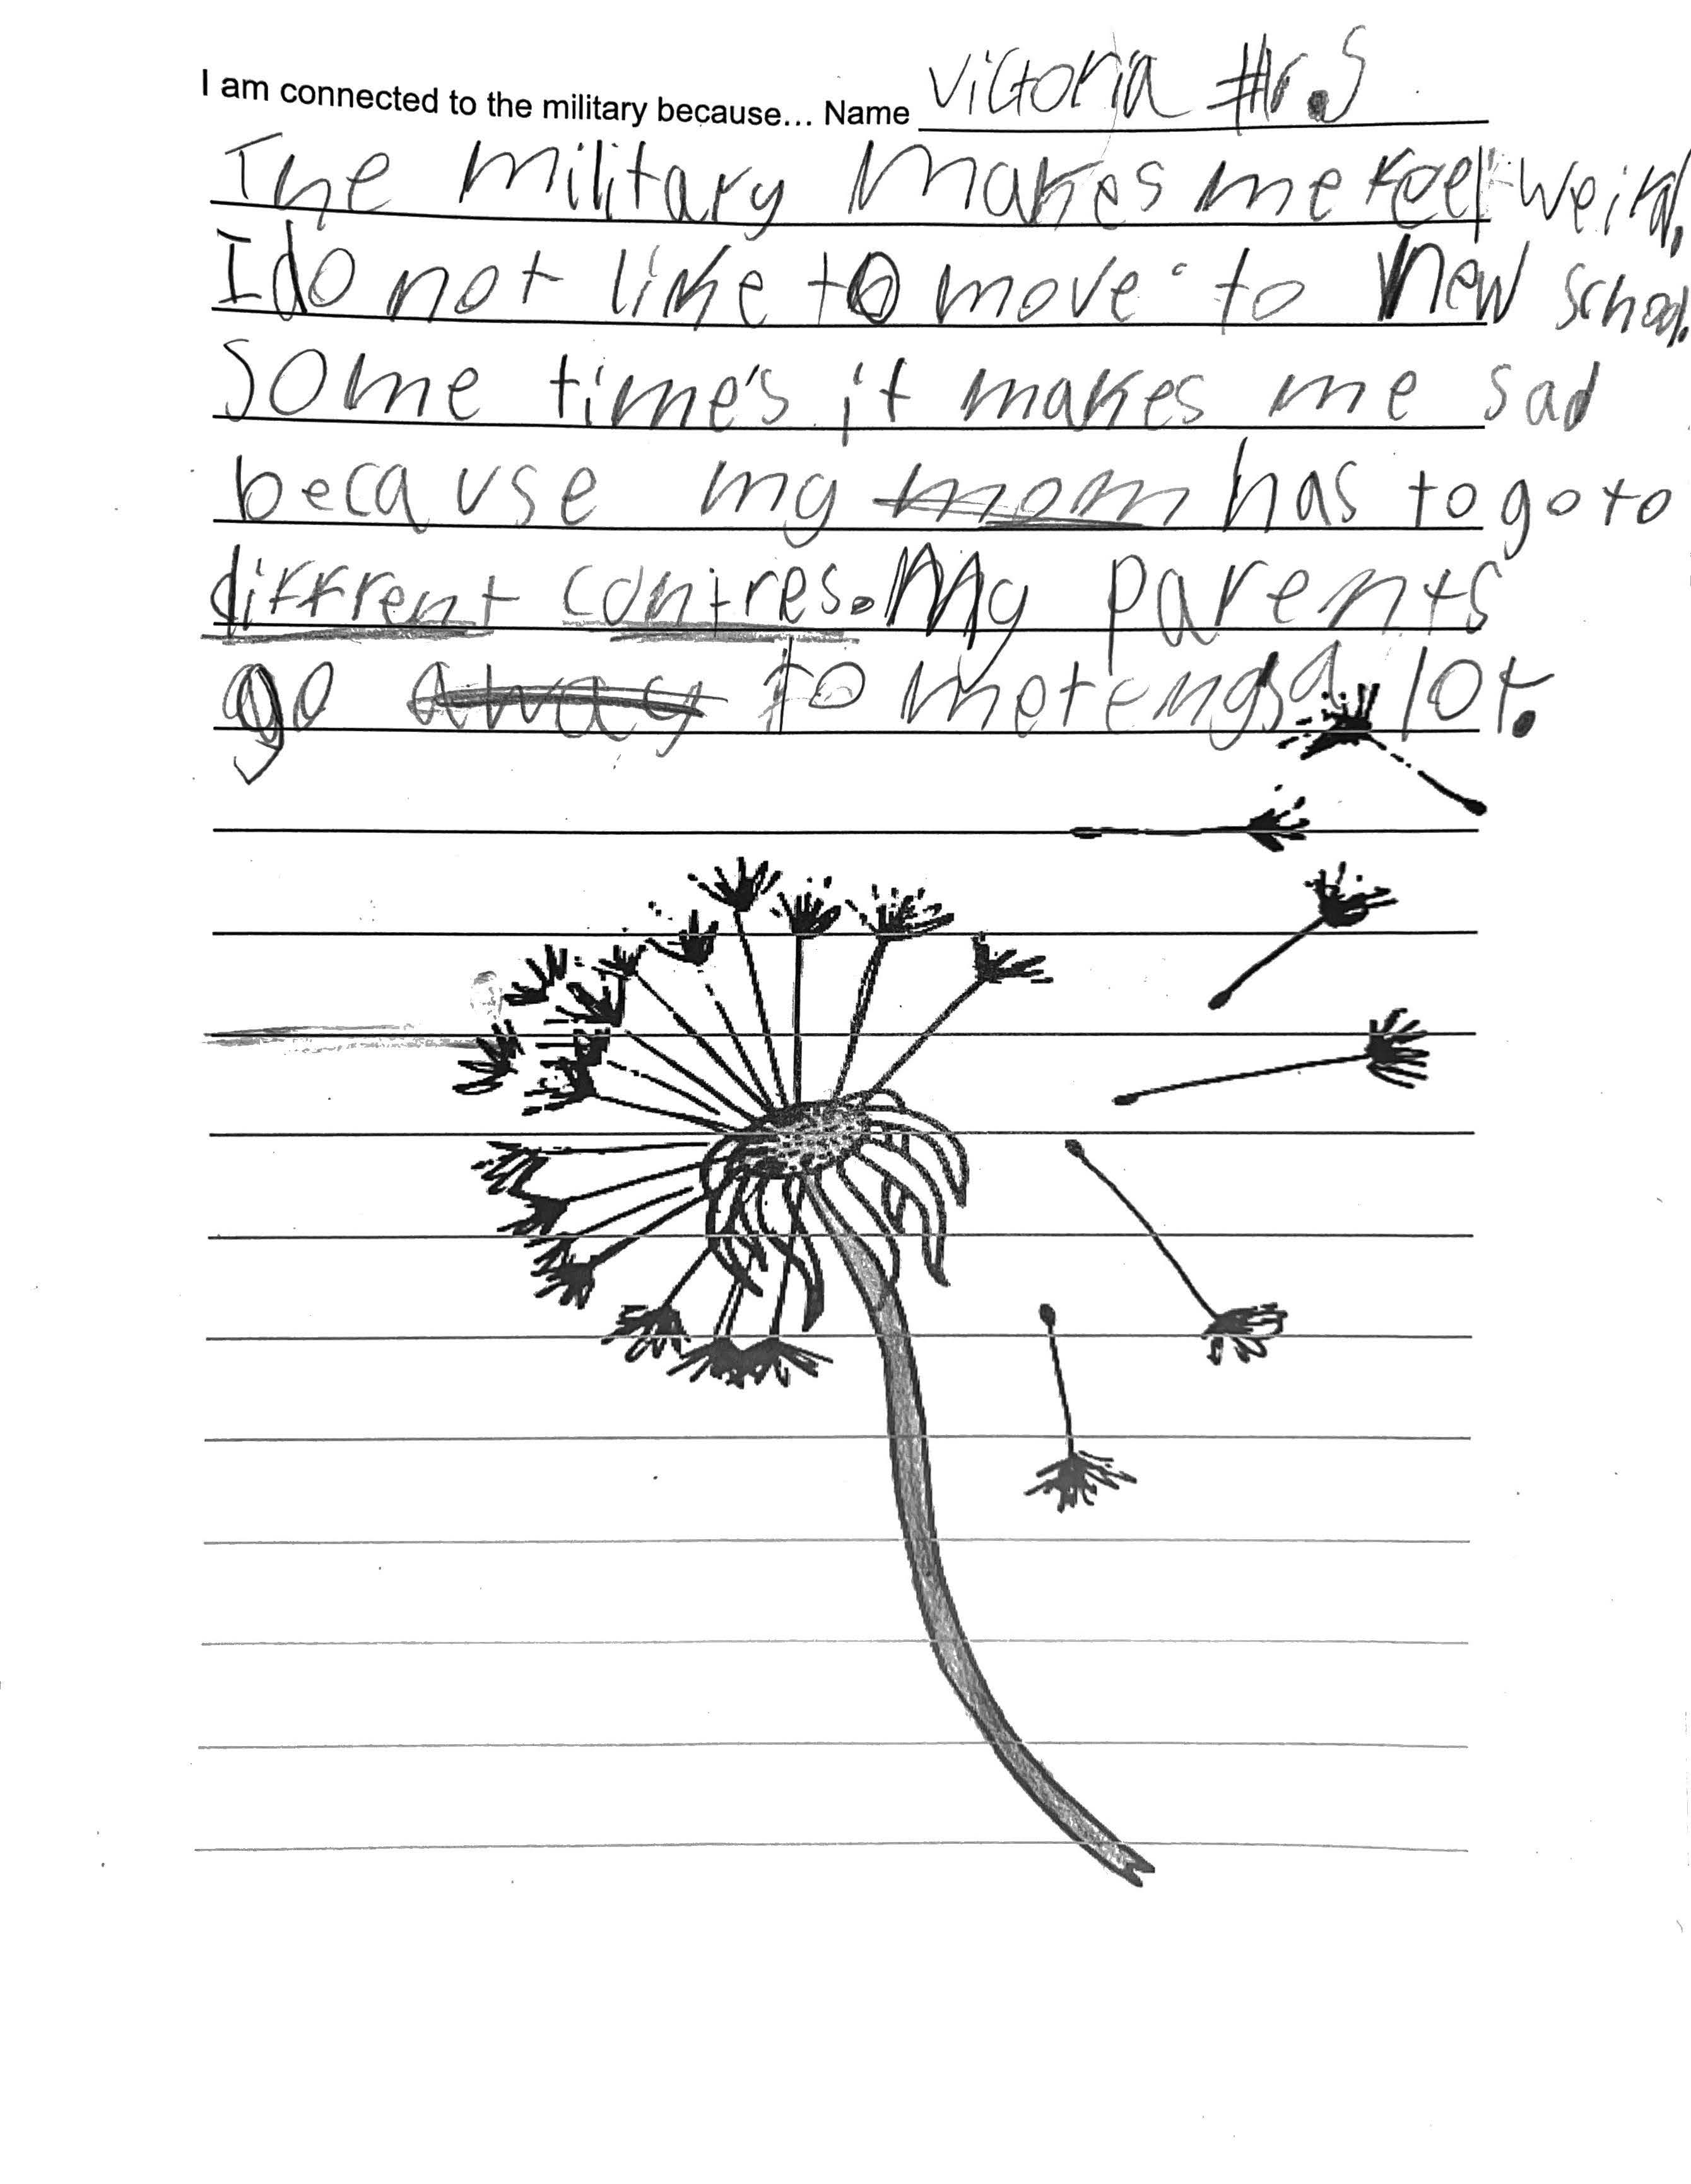 I am connected to the military because... Name Victoria #r.5
The military makes me feel weird.
I do not like to move to new school.
Some time's it makes me sad
because my mom has to go to
diffrent contres. My parents
go away to metengs a lot.